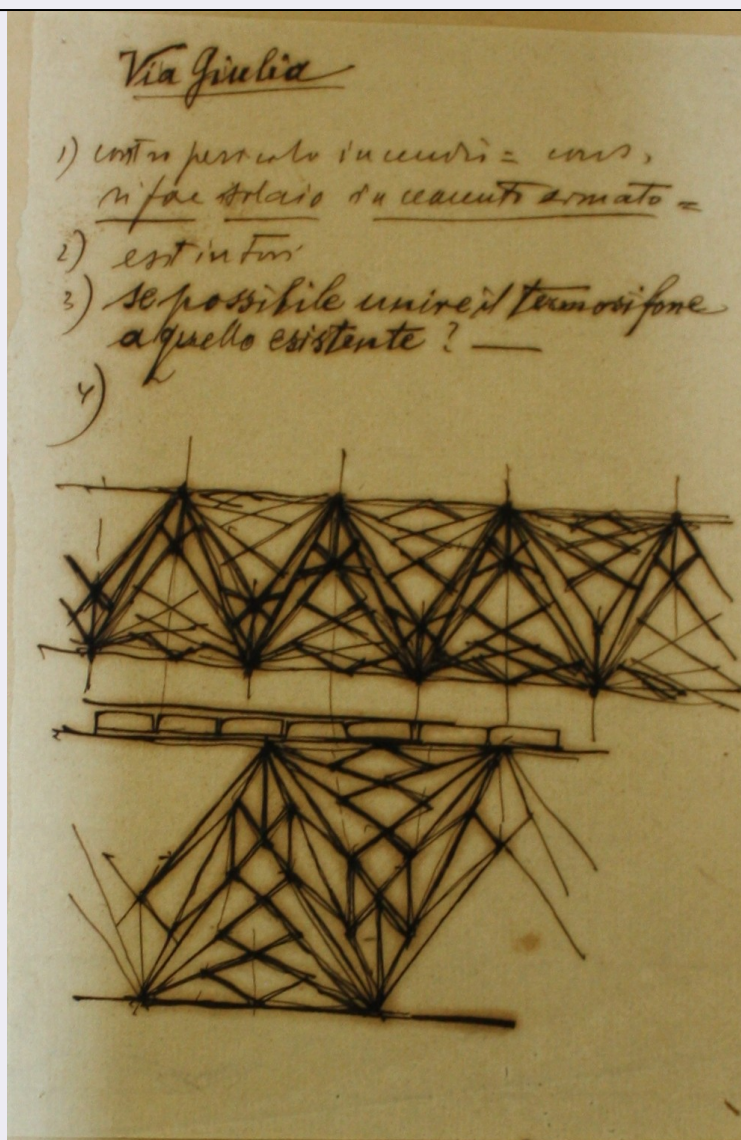 Via Giulia
1) contro pericolo incendi =
rifare solaio in cemento armato =
2) estintori
3) se possibile unire il termosifone
a quello esistente ? —
4)